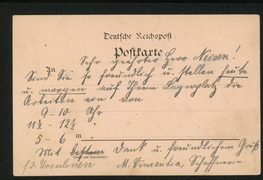 Deutsche Reichspost
Postkarte
Sehr geehrter Herr Neisen!
An
Sind Sie so freundlich u. stellen heute
u. morgen auf Ihrem Lagerplatz die
Arbeiten ein von
9 - 10 Uhr
11½ - 12½ "
5 - 6 in "
Mit bestem Dank u. freundlichem Gruß
f. d. Ursulinen M. Vincentia, Schaffnerin.